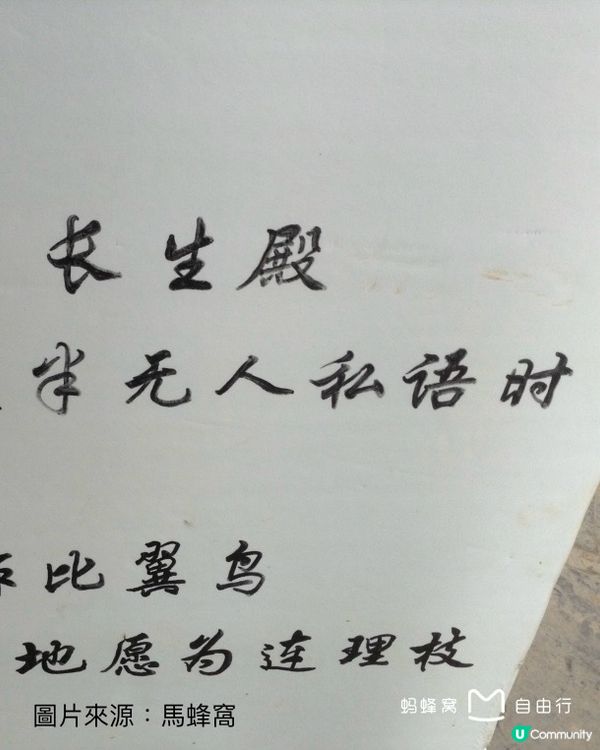 长生殿
半无人私语时
作比翼鸟
地愿为连理枝
圖片來源：馬蜂窩
蚂蜂窝 自由行
U Community